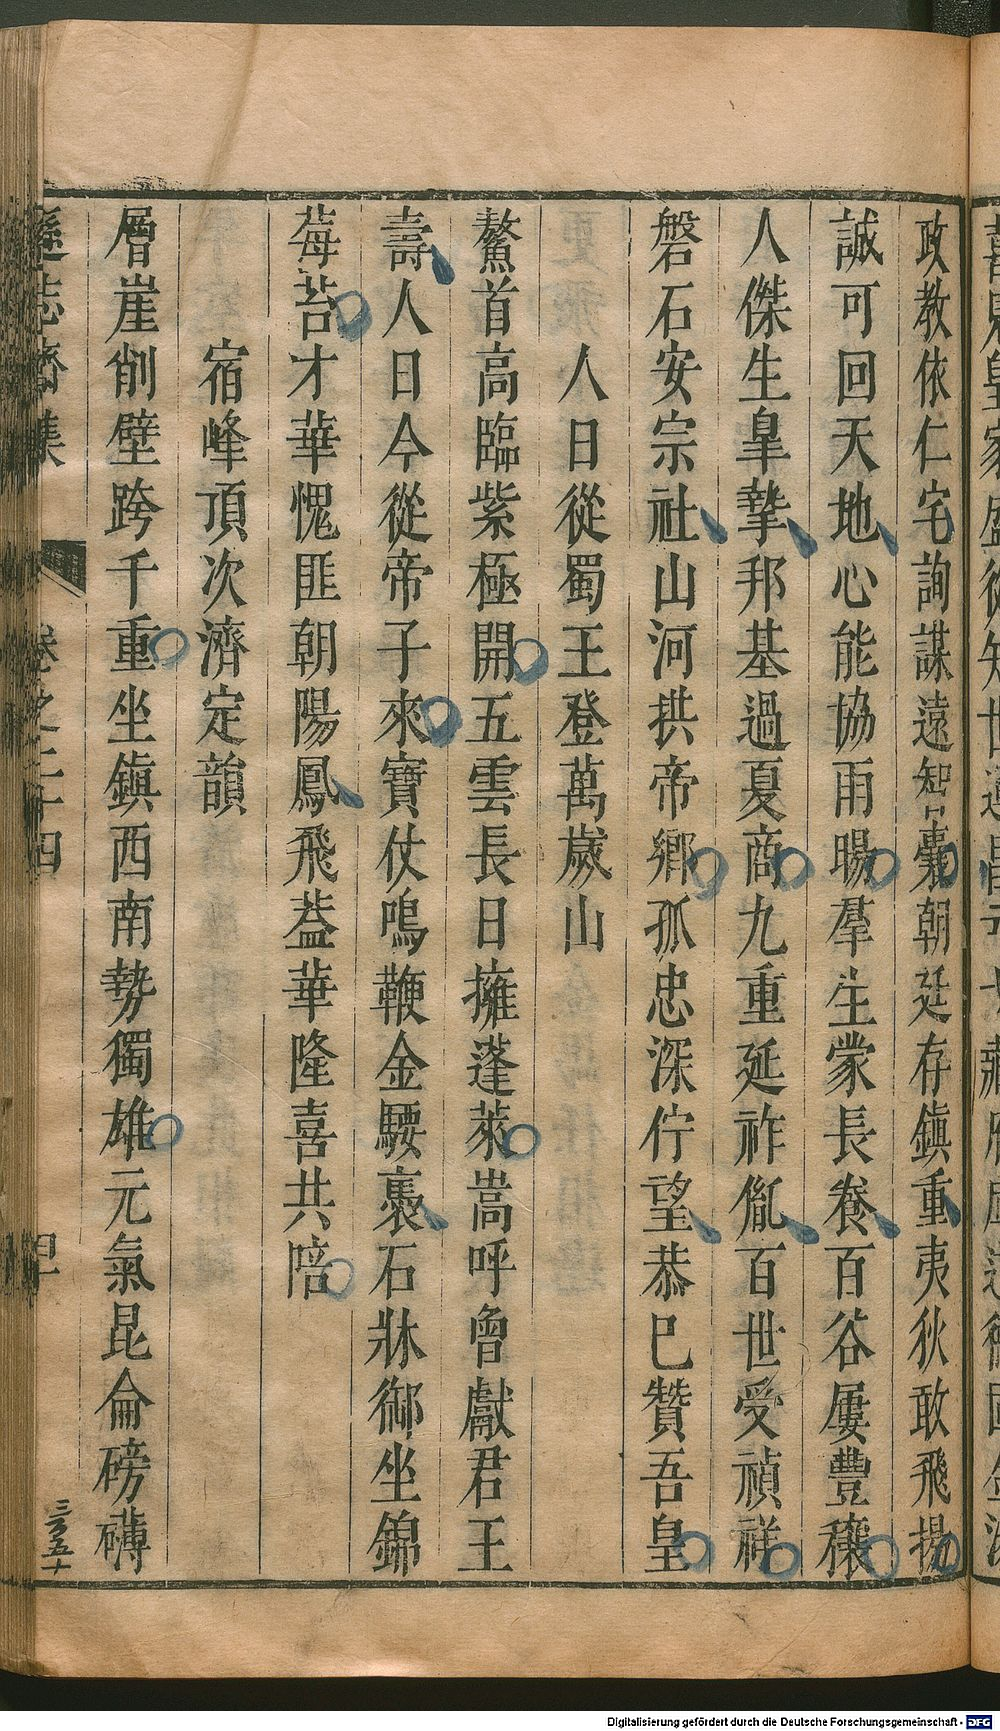 政教依仁宅詢謀遠智囊朝廷存鎮重夷狄敢飛揚
誠可回天地心能協雨暘羣生蒙長養百谷屢豐穰
人傑生皐摯邦基過夏商九重延祚胤百世受禎祥
磐石安宗社山河拱帝鄉孤忠深佇望恭巳贊吾皇
人日從蜀王登萬歲山
鰲首高臨紫極開五雲長日擁蓬萊嵩呼曾獻君王
壽人日今從帝子來寶仗鳴鞭金騕褭石牀御坐錦
莓苔才華愧匪朝陽鳳飛葢華隆喜共陪
宿峰頂次濟定韻
層崖削壁跨千重坐鎮西南勢獨雄元氣昆侖磅礴
遜志齋集
卷之二十四
四十
三百五十
Digitalisierung gefördert durch die Deutsche Forschungsgemeinschaft - DFG